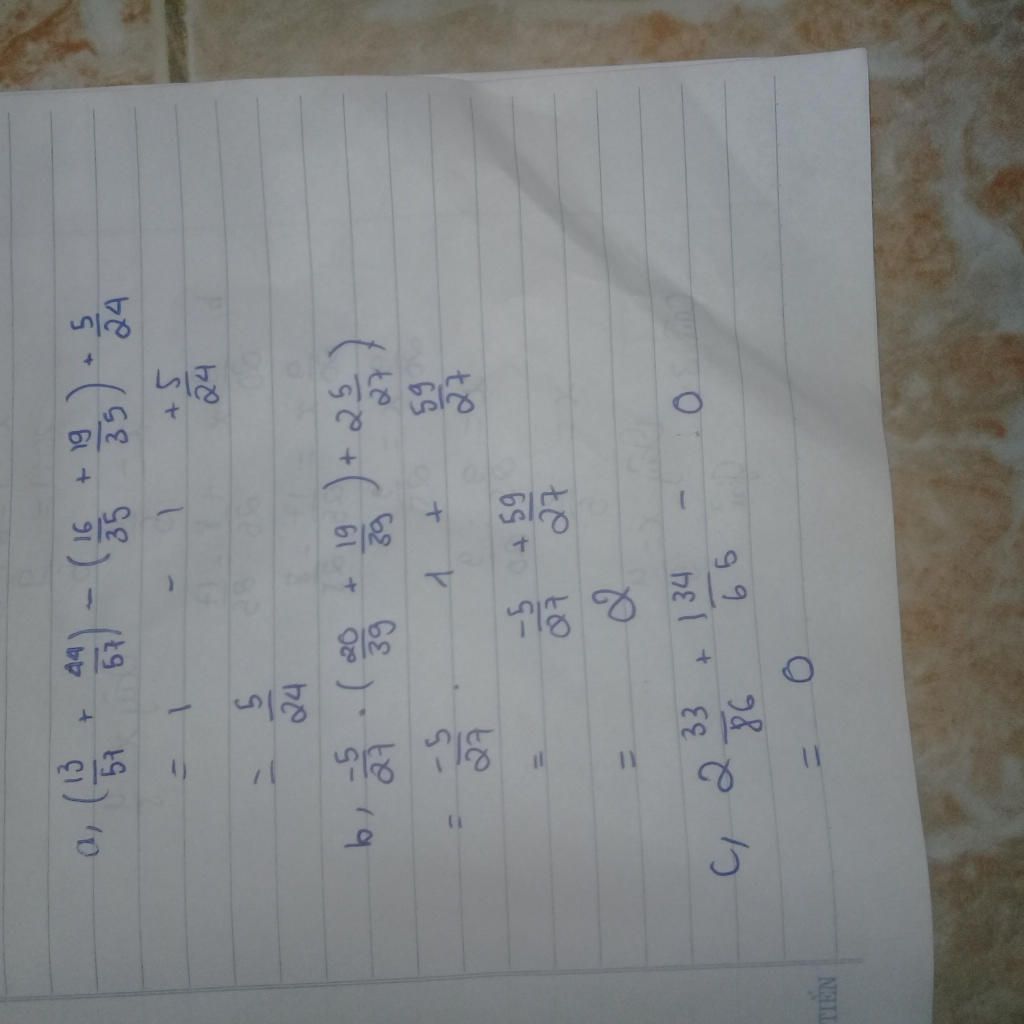 a, (13/57 + 44/57) - (16/35 + 19/35) + 5/24
= 1 - 1 + 5/24
= 5/24
b, -5/27 . (20/39 + 19/39) + 2 5/27)
= -5/27 . 1 + 59/27
= -5/27 + 59/27
= 2
c, 2 33/86 + 1 34/65 - 0
= 0
TIẾN